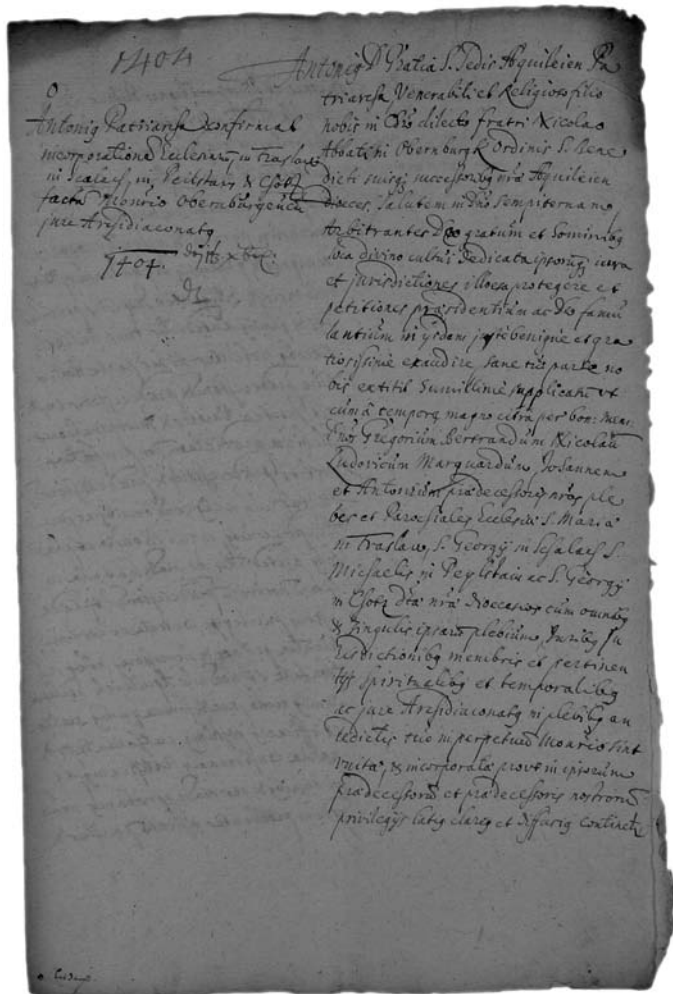 1404
Antonig Patriarcha Confirmat
incorporatione Ecclesiarũ in Fraslaw
in Scalach, in Peilstain & Chotz
factã Monrio Obernburgensi cũ
jure Archidiaconatq
1404.
Antonig D: Gratia S. Sedis Aquileien Pa
triarcha Venerabili et Religioso filio
nobis in Chro dilecto fratri Nicolao
Abbati in Obernburgk Ordinis S. Bene
dicti suisq successoribq nrã Aquileien
Dioeces. Salutem in dno Sempiternam
Arbitrantes Deo gratum et hominibq
loca divino cultui dedicata ipsorumq iura
et jurisdictiones illoesa protegere et
petitiones præsidentium ac Deo famu
lantium in ijsdem juste benigne et gra
tiosissime exaudire, sane tuis parte no
bis extitit humillime supplicatũ ut
cum â tempore magno citra per bon: mem:
Dnos Gregorium Bertrandum Nicolaũ
Ludovicum Marquardum, Johannem
et Antonium prædecessores nros ple
bes et Parochiales Ecclesiæ S. Mariæ
in Fraslaw, S. Georgij in Schalach S.
Michaelis in Peylstain ac S. Georgij
in Chotz dtã nrã Dioecesis cum omnibq
& singulis ipsarũ plebium, Juribq Ju
risdictionibq membris et pertinen
tijs spiritualibq et temporalibq
ac jure Archidiaconatq in plebibq an
tedictis tuo in perpetuũ Monrio sint
unitæ, & incorporatæ prout in ipsorum
prædecessorũ et prædecessoris nostrorũ
privilegijs latiq clareq et diffusiq continetr